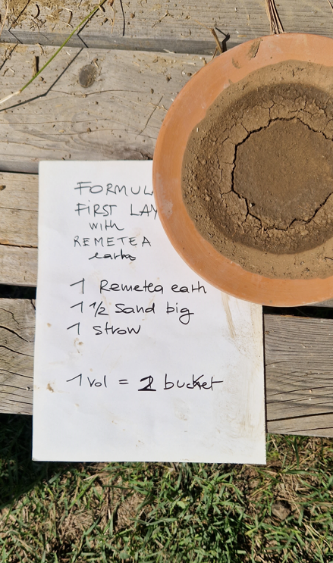 FORMUL
FIRST LAY
with
REMETEA
earth
1 Remetea earth
1 1/2 Sand big
1 straw
1 vol = 2 bucket